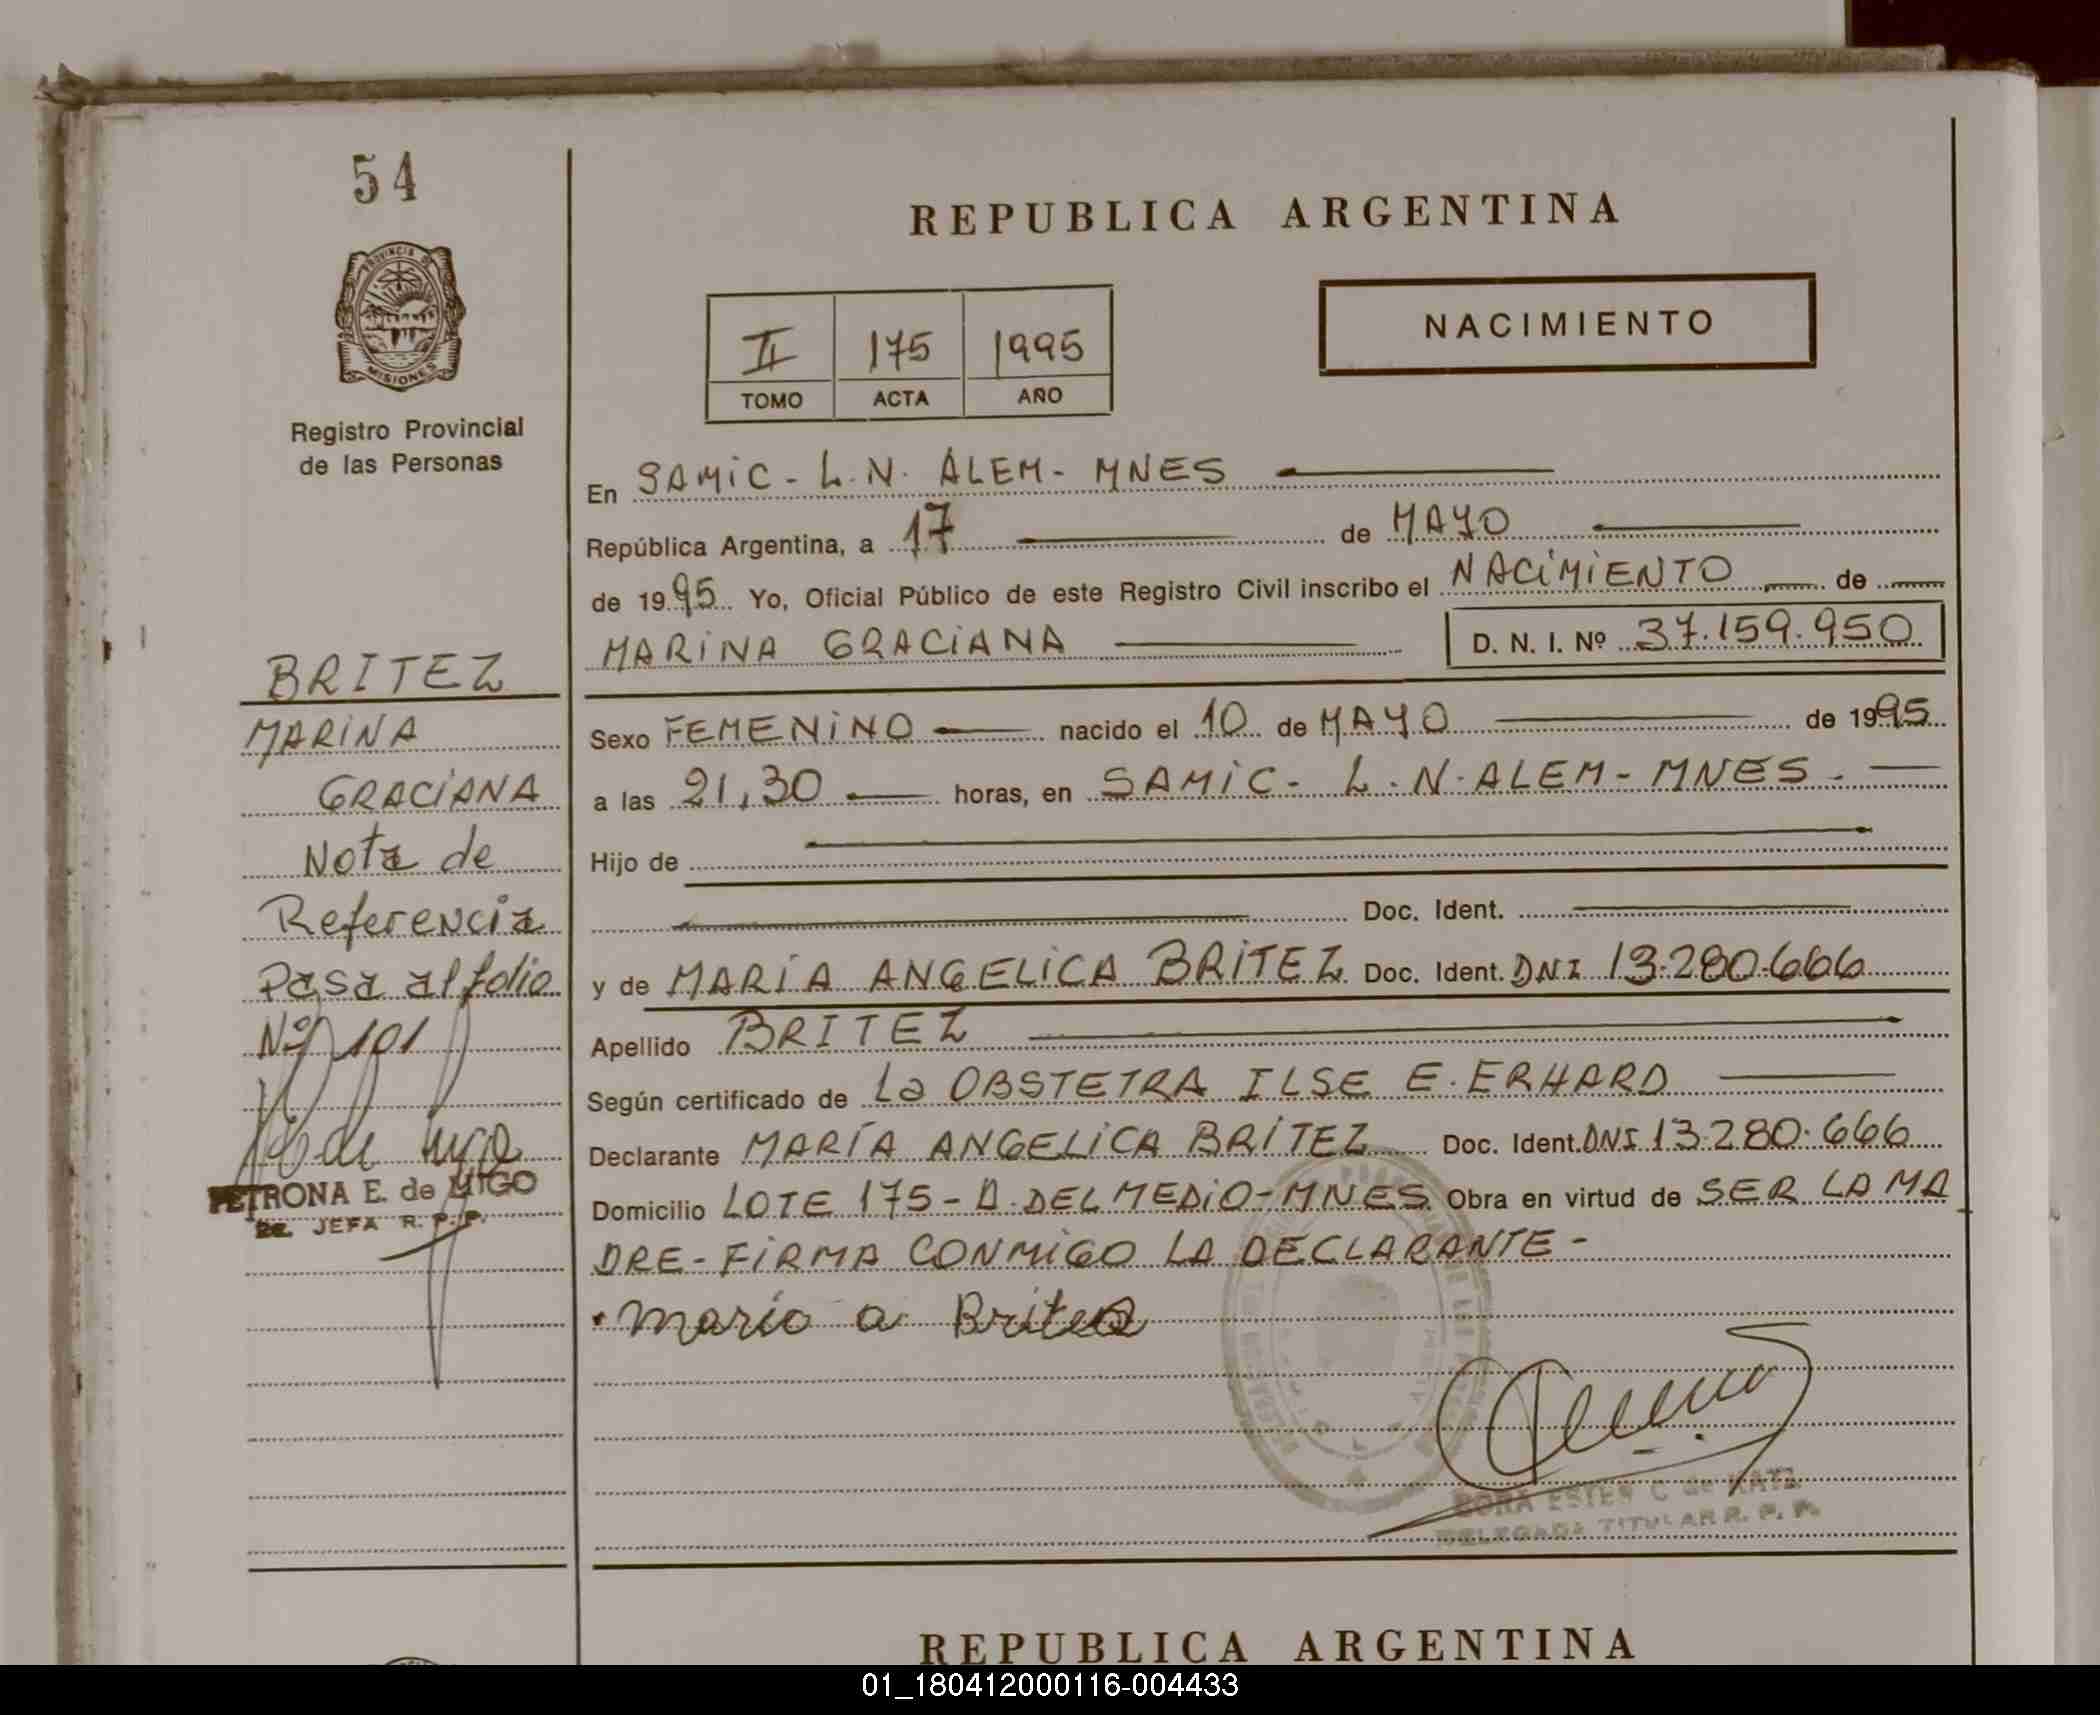 54
REPUBLICA ARGENTINA
PROVINCIA DE
MISIONES
Registro Provincial
de las Personas
II 175 1995
TOMO ACTA AÑO
NACIMIENTO
En SAMIC - L.N. ALEM - MNES
República Argentina, a 17 de MAYO
de 1995 Yo, Oficial Público de este Registro Civil inscribo el NACIMIENTO de
MARINA GRACIANA D. N. I. Nº 37.159.950
BRITEZ
MARINA
GRACIANA
Nota de
Referencia
Pasa al folio
Nº 101
PETRONA E. de MIGO
JEFA R. P. P.
Sexo FEMENINO nacido el 10 de MAYO de 1995
a las 21,30 horas, en SAMIC - L.N. ALEM - MNES -
Hijo de
Doc. Ident.
y de MARÍA ANGELICA BRITEZ Doc. Ident. DNI 13.280.666
Apellido BRITEZ
Según certificado de La OBSTETRA ILSE E. ERHARD
Declarante MARÍA ANGELICA BRITEZ Doc. Ident. DNI 13.280.666
Domicilio LOTE 175 - A. DEL MEDIO - MNES Obra en virtud de SER LA MA
DRE - FIRMA CONMIGO LA DECLARANTE -
maria a Britez
DORA ESTER C de KATZ
DELEGADA TITULAR R. P. P.
REPUBLICA ARGENTINA
01_180412000116-004433